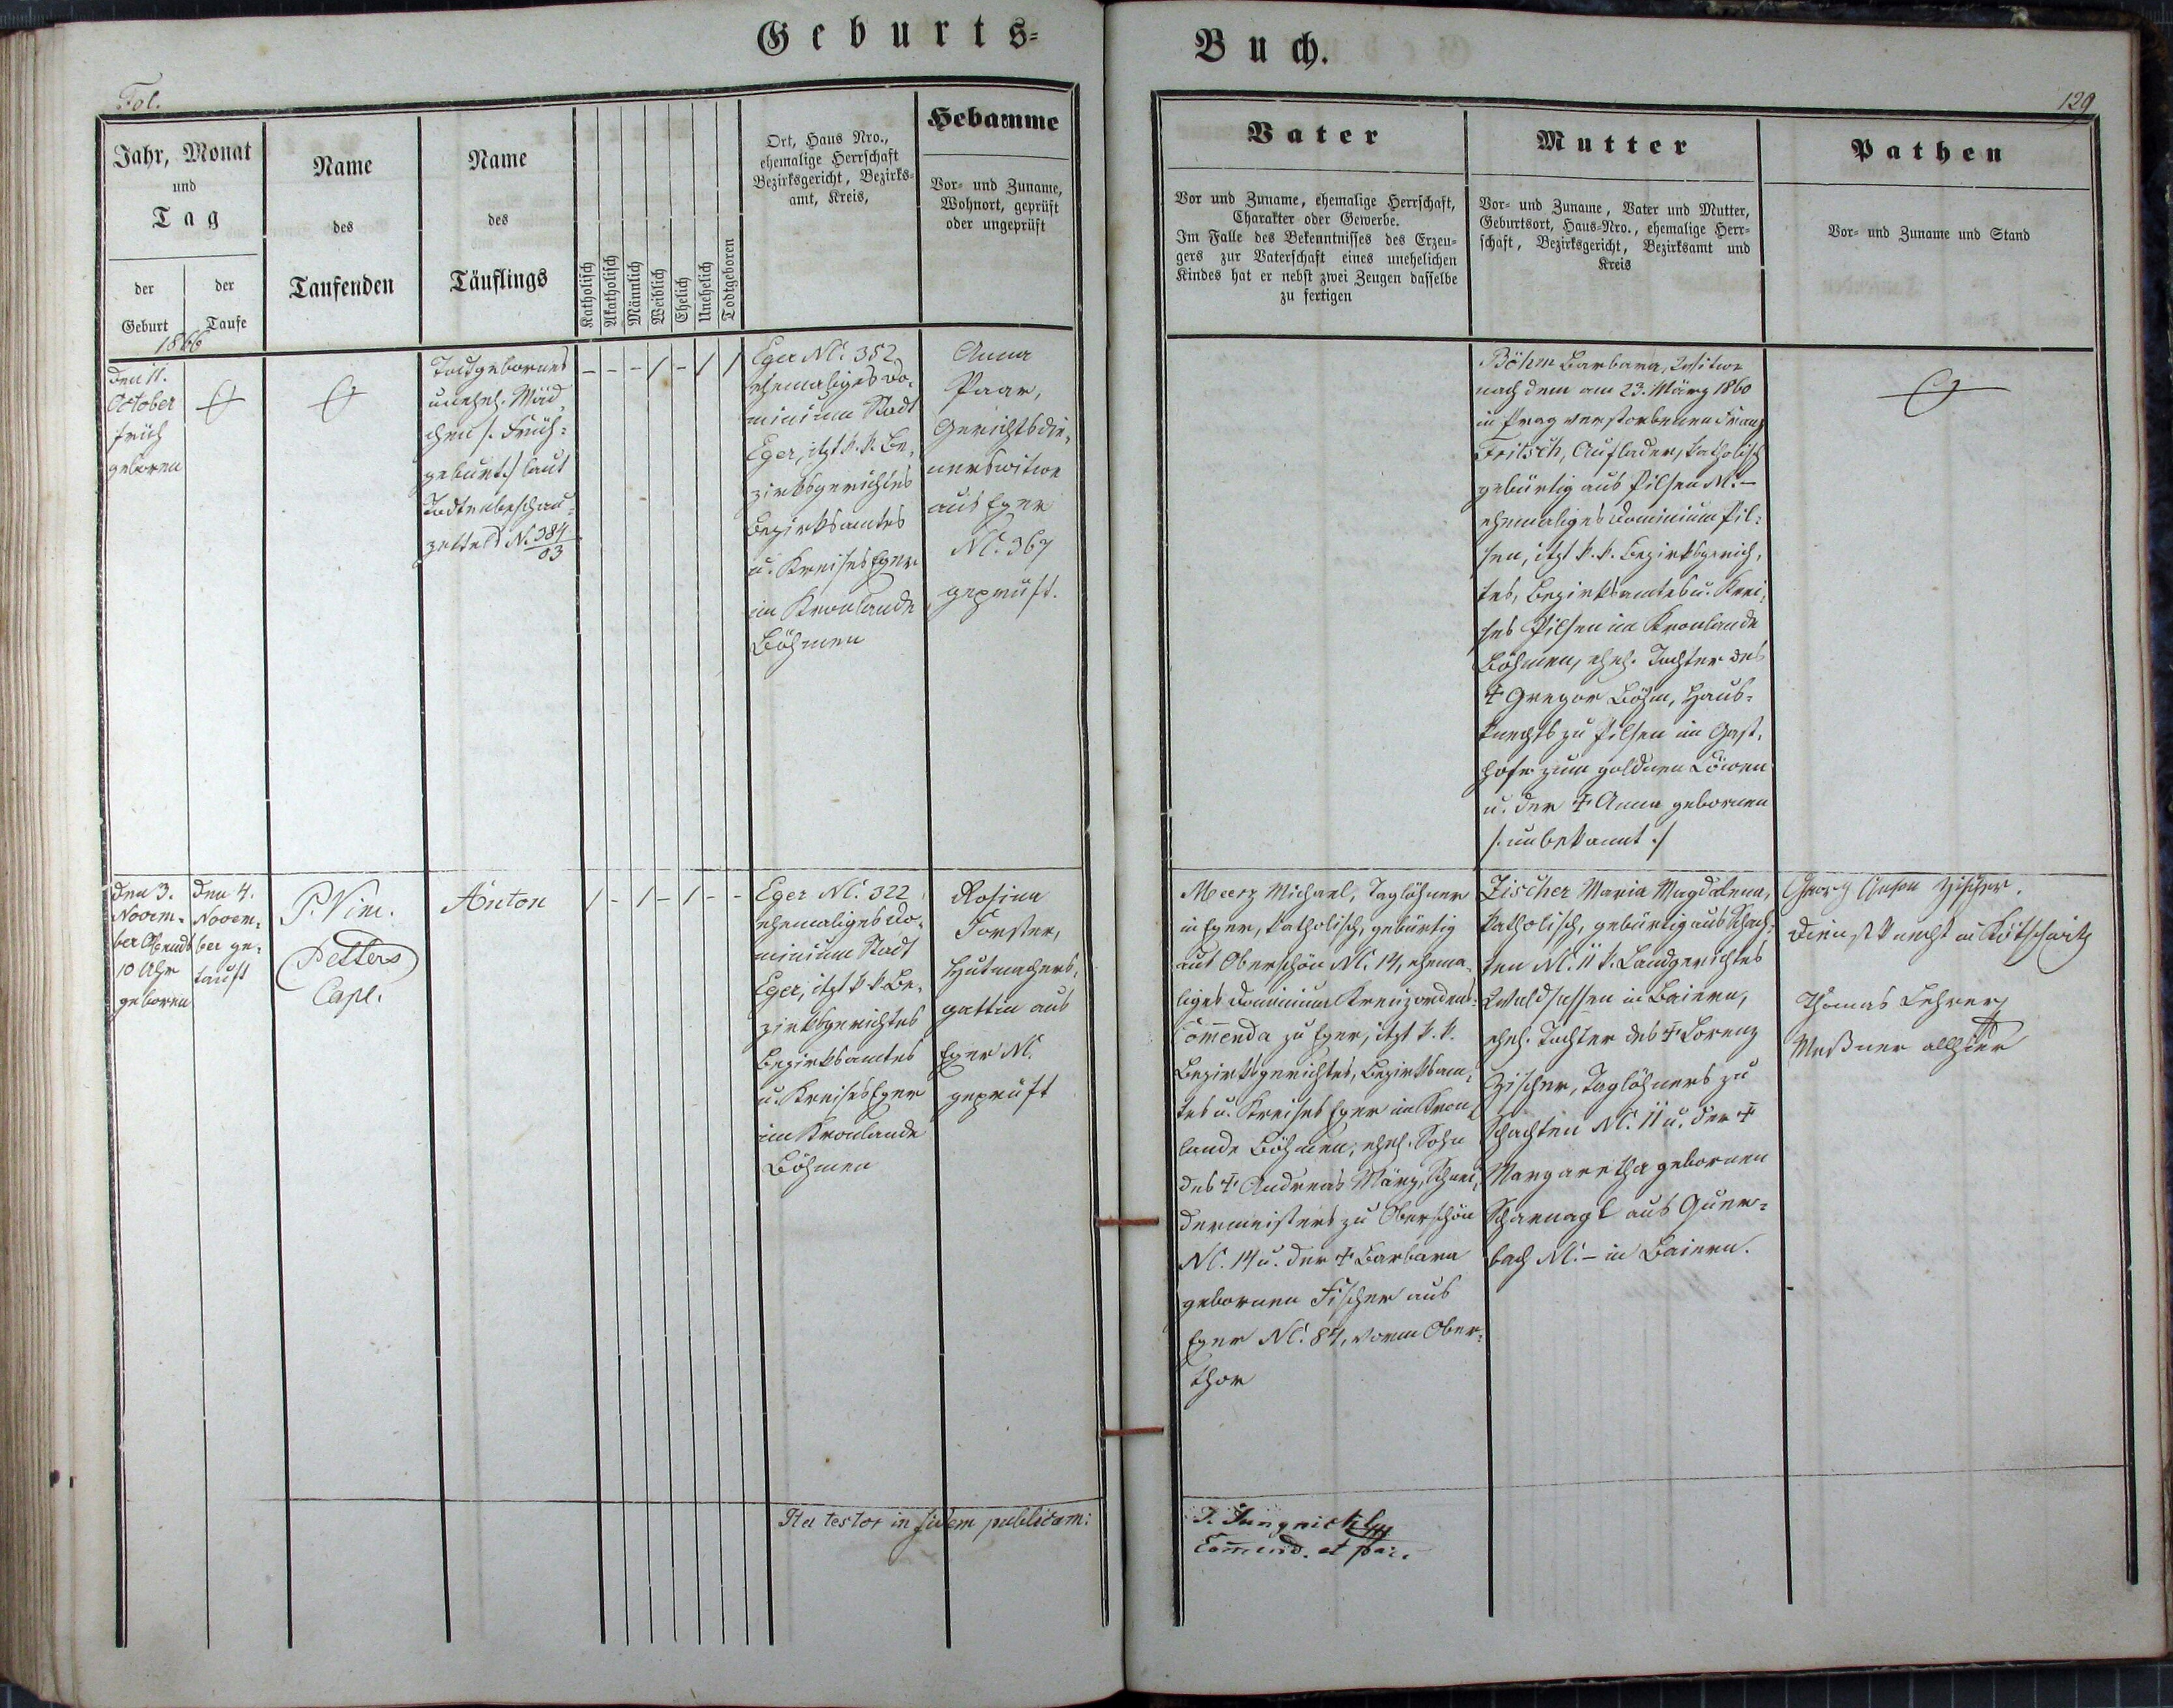 Geburts-
Buch.
Fol.
129
Jahr, Monat
und
Tag
der
Geburt
der
Taufe
Name
des
Taufenden
Name
des
Täuflings
Katholisch
Akatholisch
Männlich
Weiblich
Ehelich
Unehelich
Todtgeboren
Ort, Haus Nro.,
ehemalige Herrschaft
Bezirksgericht, Bezirks-
amt, Kreis,
Hebamme
Vor- und Zuname,
Wohnort, geprüft
oder ungeprüft
Vater
Vor und Zuname, ehemalige Herrschaft,
Charakter oder Gewerbe.
Im Falle des Bekenntnisses des Erzeu-
gers zur Vaterschaft eines unehelichen
Kindes hat er nebst zwei Zeugen dasselbe
zu fertigen
Mutter
Vor- und Zuname, Vater und Mutter,
Geburtsort, Haus-Nro., ehemalige Herr-
schaft, Bezirksgericht, Bezirksamt und
Kreis
Pathen
Vor- und Zuname und Stand
1866
den 11.
October
früh
geboren
Todtgebornes
unehel. Mäd-
chen /: Früh-
geburt :/ laut
Todtenbeschau-
zettels N. 384/03
- - - / - / /
Eger NC. 352
ehemaliges Do-
minium Stadt
Eger, itzt k. k. Be-
zirksgerichtes
Bezirksamtes
u. Kreises Eger
im Kronlande
Böhmen
Anna
Paar,
Gerichtsdie-
nerswitwe
aus Eger
NC. 367
geprüft.
Böhm Barbara, Witwe
nach dem am 23. März 1860
in Prag verstorbenen Franz
Fritsch, Auflader, katholisch
gebürtig aus Pilsen NC. -
ehemaliges Dominium Pil-
sen, itzt k. k. Bezirksgerich-
tes, Bezirksamtes u. Krei-
ses Pilsen im Kronlande
Böhmen, ehel. Tochter des
† Gregor Böhm, Haus-
knechts zu Pilsen im Gast-
hofe zum goldnen Löwen
u. der † Anna gebornen
/: unbekannt :/
den 3.
Novem-
ber Abends
10 Uhr
geboren
den 4.
Novem-
ber ge-
tauft
P. Vin.
Petters
Capl.
Anton
/ - / - / - -
Eger NC. 322
ehemaliges Do-
minium Stadt
Eger, itzt k k Be-
zirksgerichtes
Bezirksamtes
u. Kreises Eger
im Kronlande
Böhmen
Rosina
Forster,
Hutmachers-
gattin aus
Eger NC.
geprüft
Maerz Michael, Taglöhner
in Eger, katholisch, gebürtig
aus Oberschön NC. 14, ehema-
liges Dominium Kreuzordens-
Com̄enda zu Eger, itzt k. k.
Bezirksgerichtes, Bezirksam-
tes u. Kreises Eger im Kron-
lande Böhmen, ehel. Sohn
des † Andreas März, Schnei-
dermeisters zu Oberschön
NC. 14 u. der † Barbara
gebornen Fischer aus
Eger NC. 84, vorm Ober-
thor
Zischer Maria Magdalena,
katholisch, gebürtig aus Schach-
ten NC. 11 k. Landgerichtes
Waldsassen in Baiern,
ehel. Tochter des † Lorenz
Zischer, Taglöhners zu
Schachten NC. 11 u. der †
Margaretha gebornen
Scharnagl aus Quer-
bach NC. - in Baiern.
Georg Zischer.
Dienstknecht in Kötschwitz
Thomas Lehrer
Meßner allhier
Ita testor in fidem publicam:
J. Jungnickl
Com̄end. et par.